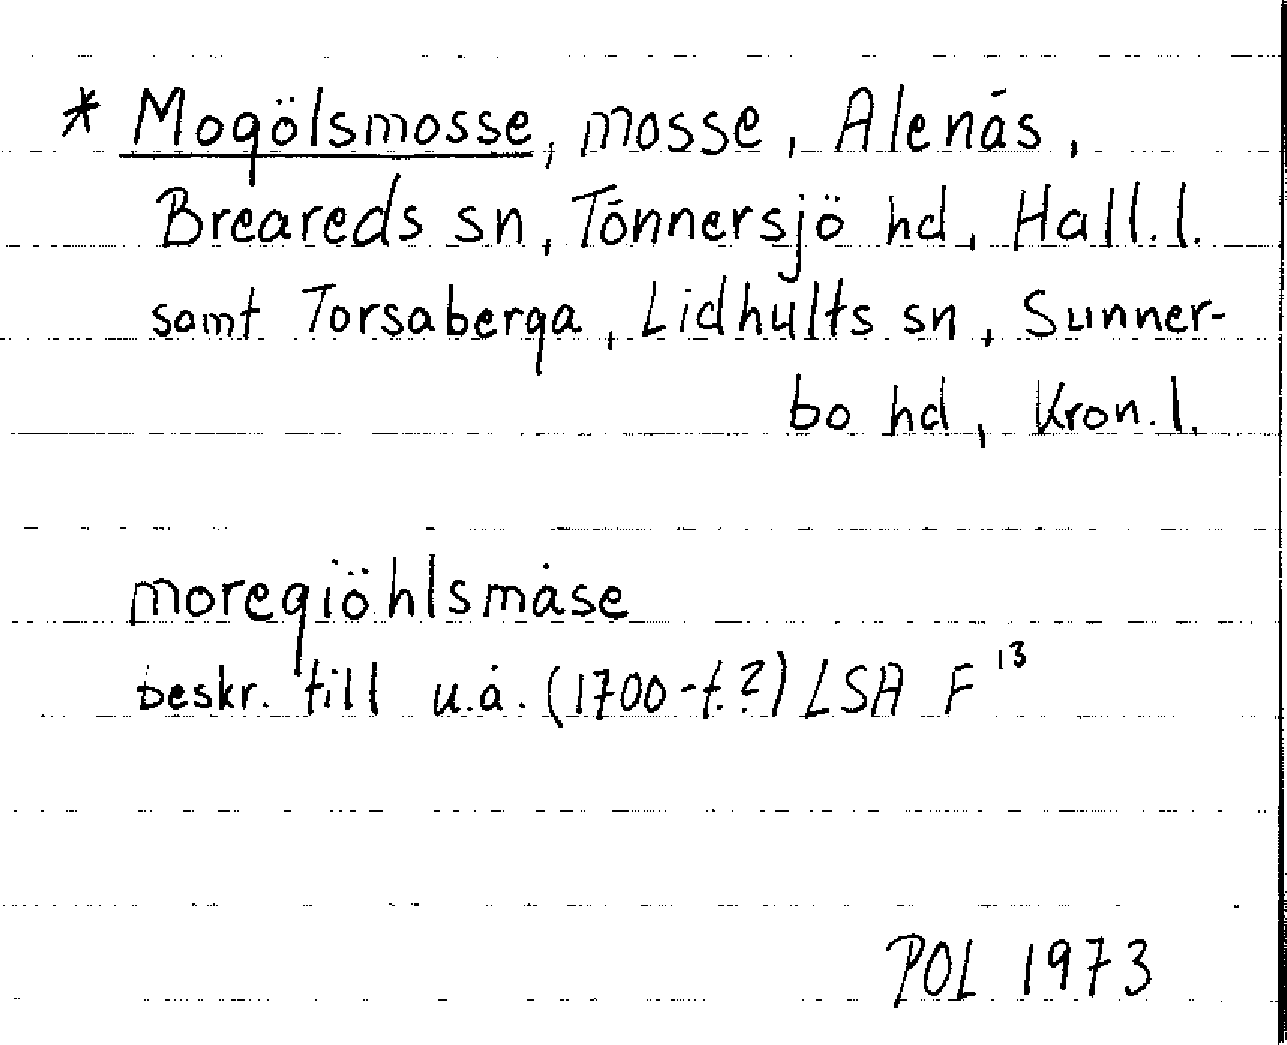 * Mogölsmosse, mosse, Alenäs,
Breareds sn, Tönnersjö hd, Hall.l.
samt Torsaberga, Lidhults sn, Sunner-
bo hd, Kron.l.
moregiöhlsmåse
beskr. till u.å. (1700-t.?) LSA F 13
POL 1973